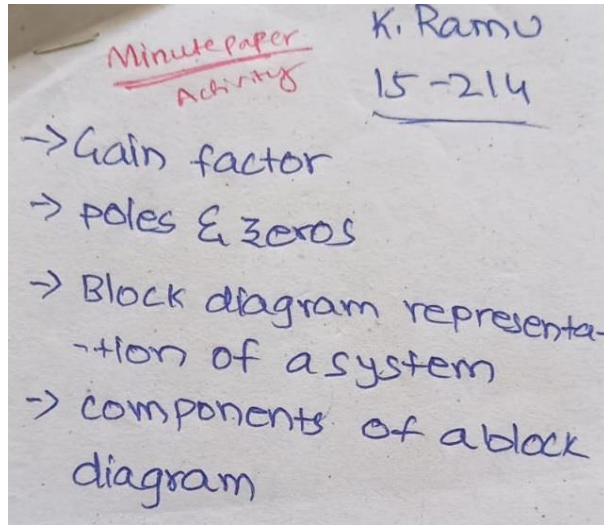 Minute paper
Activity
K. Ramu
15-214
→ Gain factor
→ poles & zeros
→ Block diagram representa-
-tion of a system
→ components of a block
diagram